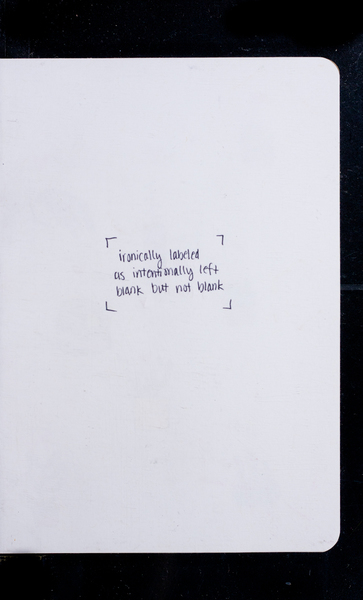 ironically labeled
as intentionally left
blank but not blank